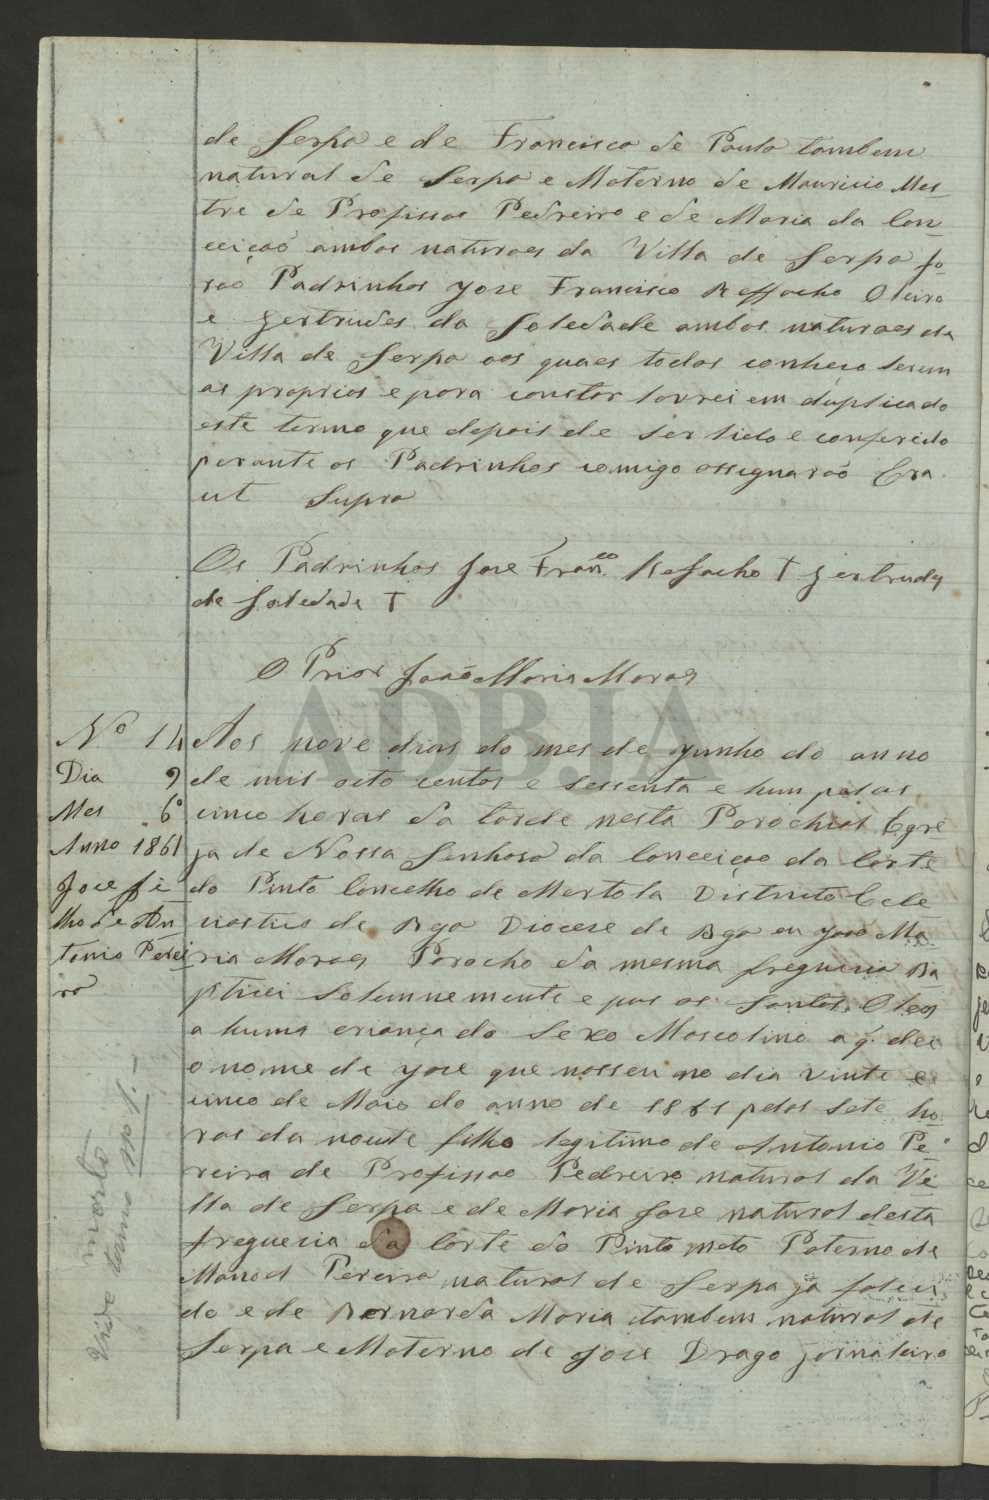 de Serpa e de Francisca de Paula tambem
natural de Serpa e Materno de Mauricio Mes-
tre de Profissao Pedreiro e de Maria da Con-
ceiçaõ ambos naturaes da Villa de Serpa fo-
raõ Padrinhos Jose Francisco Reffacho Oleiro
e Gertrudes da Soledade ambos naturaes da
Villa de Serpa aos quaes todos conheço serem
os proprios e para constar lavrei em duplicado
este termo que depois de ser lido e conferido
perante os Padrinhos comigo assignaraõ Era
ut Supra
Os Padrinhos Jose Fran.co Refacho † Gertrudes
de Soledade †
O Prior Joaõ Maria Moraes
ADBJA
Nº 14
Dia 9
Mes 6º
Anno 1861
Jose fi
lho de An
tonio Perei
ra
Aos nove dias do mes de Junho do anno
de mil oito centos e sessenta e hum pelas
cinco horas da tarde nesta Parochial Egre
ja de Nossa Senhora da Conceiçao da Corte
do Pinto Concelho de Mertola Districto Ecle
siastico de Bja Diocese de Bja eu Joao Ma-
ria Moraes Parocho da mesma freguesia Ba
ptizei Solemnemente e pus os Santos Oleos
a huma criança do Sexo Mascolino a q. dei
o nome de Jose que nasseu no dia vinte e
cinco de Maio do anno de 1861 pelas Sete ho-
ras da noute filho legitimo de Antonio Pe-
reira de Profissao Pedreiro natural da Vi
lla de Serpa e de Maria Jose natural desta
freguesia da Corte do Pinto neto Paterno de
Manoel Pereira natural de Serpa ja faleci
do e de Bernarda Maria tambem natural de
Serpa e Materno de Jose Drago jornaleiro
Vide morto
termo nº 1.-